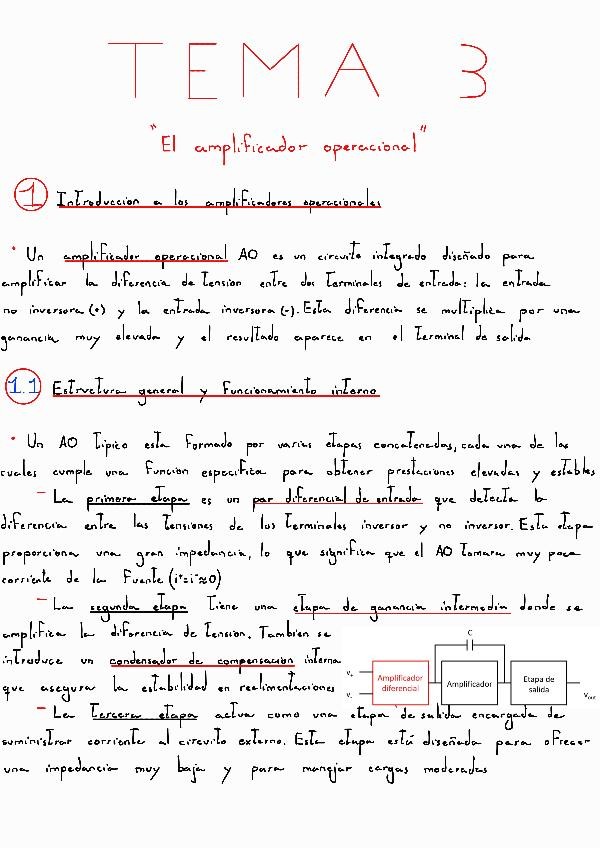 TEMA 3
"El amplificador operacional"
1 Introducción a los amplificadores operacionales
· Un amplificador operacional AO es un circuito integrado diseñado para
amplificar la diferencia de tensión entre dos terminales de entrada: la entrada
no inversora (+) y la entrada inversora (-). Esta diferencia se multiplica por una
ganancia muy elevada y el resultado aparece en el terminal de salida
1.1 Estructura general y funcionamiento interno
· Un AO típico esta formado por varias etapas concatenadas, cada una de las
cuales cumple una función especifica para obtener prestaciones elevadas y estables
- La primera etapa es un par diferencial de entrada que detecta la
diferencia entre las tensiones de los terminales inversor y no inversor. Esta etapa
proporciona una gran impedancia, lo que significa que el AO tomara muy poca
corriente de la fuente (i⁺=i⁻≈0)
- La segunda etapa tiene una etapa de ganancia intermedia donde se
amplifica la diferencia de tensión. También se
introduce un condensador de compensación interna
que asegura la estabilidad en realimentaciones
C
V+
V-
Amplificador
diferencial
Amplificador
Etapa de
salida
Vout
- La tercera etapa actúa como una etapa de salida encargada de
suministrar corriente al circuito externo. Esta etapa está diseñada para ofrecer
una impedancia muy baja y para manejar cargas moderadas